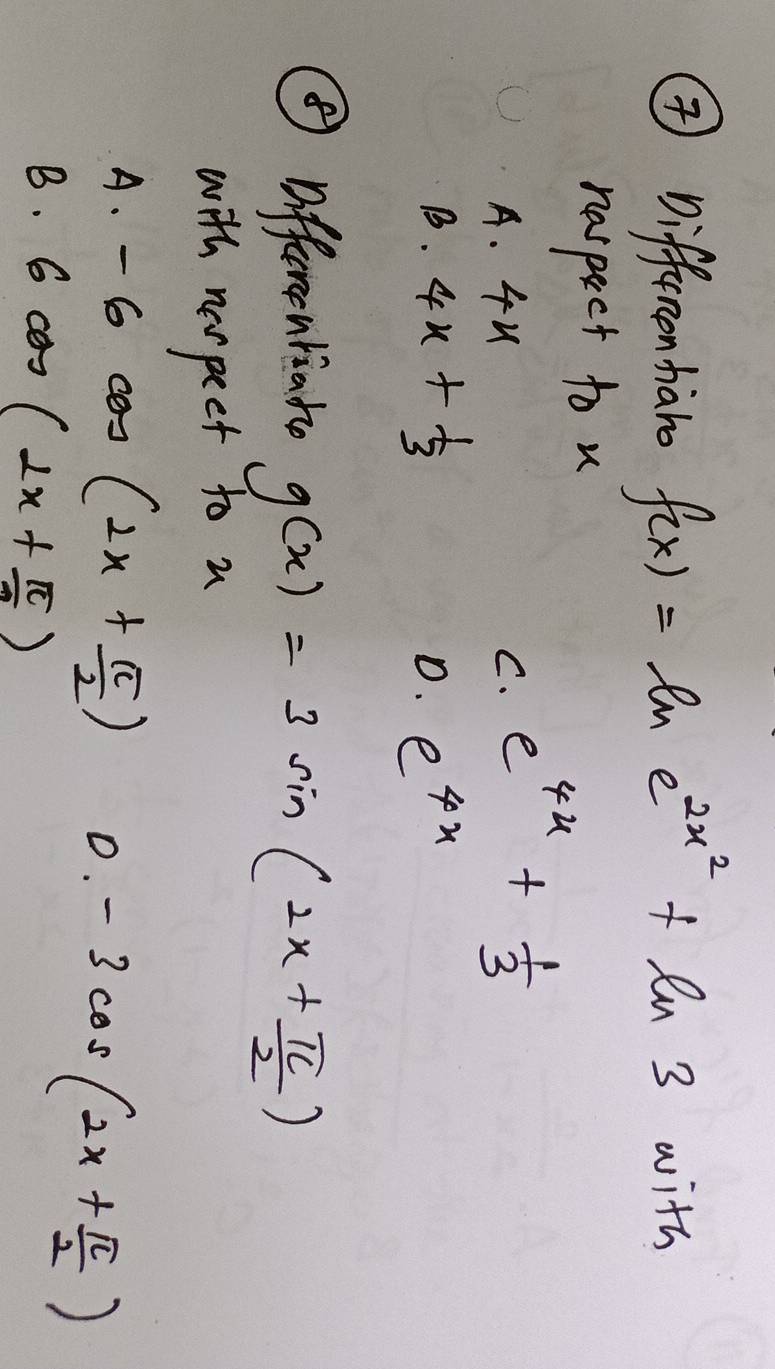 ⑦ Differentiate f(x) = ln e^{2x^2} + ln 3 with
respect to x
A. 4x C. e^{4x} + 1/3
B. 4x + 1/3 D. e^{4x}
⑧ Differentiate g(x) = 3 sin (2x + π/2)
with respect to x
A. - 6 cos (2x + π/2) D. - 3 cos (2x + π/2)
B. 6 cos (2x + π/2)